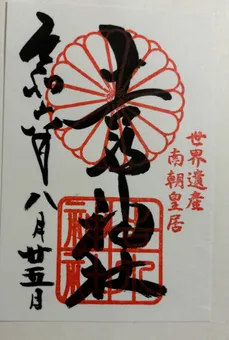 世界遺産
南朝皇居
吉水神社
令和
八月廿五日